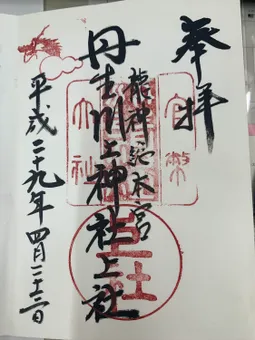 奉拝
官幣
龍神総本宮
丹生川上神社上社
大社
上社
平成二十九年四月二十二日